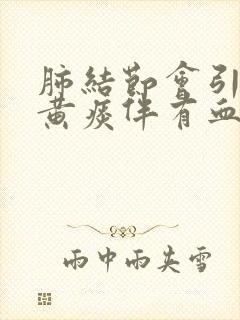 肺結節會引
黄痰伴有血
雨中雨夹雪